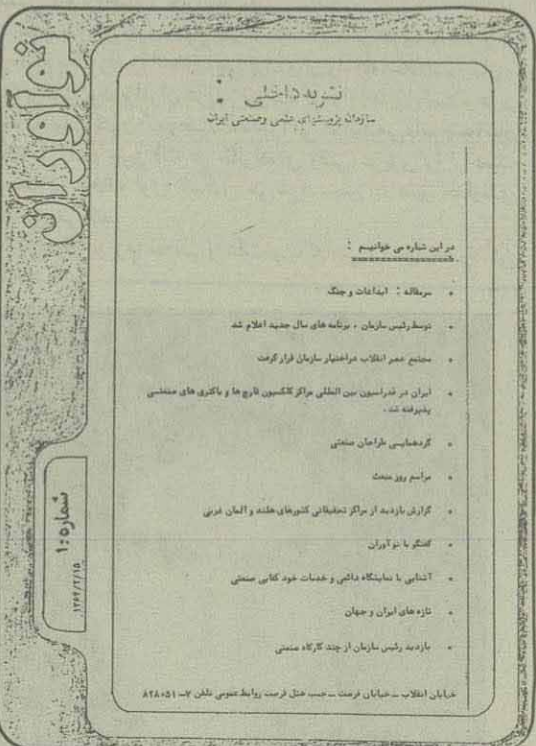 نوآوران
نشریه داخلی :
سازمان پژوهشهای علمی وصنعتی ایران
در این شماره می خوانیم :
سرمقاله : ابداعات و جنگ
توسط رئیس سازمان ، برنامه های سال جدید اعلام شد
مجتمع عصر انقلاب دراختیار سازمان قرار گرفت
ایران در فدراسیون بین المللی مراکز کلکسیون قارچ ها و باکتری های صنعتی
پذیرفته شد .
گردهمایی طراحان صنعتی
مراسم روز صنعت
گزارش بازدید از مراکز تحقیقاتی کشورهای هلند و آلمان غربی
گفتگو با نو آوران
آشنایی با نمایشگاه دائمی و خدمات خود کفایی صنعتی
تازه های ایران و جهان
بازدید رئیس سازمان از چند کارگاه صنعتی
خیابان انقلاب ــ خیابان فرصت ــ جنب هتل فرصت روابط عمومی تلفن ۷ــ ۸۲۸۰۵۱
شماره : ۱
۱۳۶۴/۲/۱۵